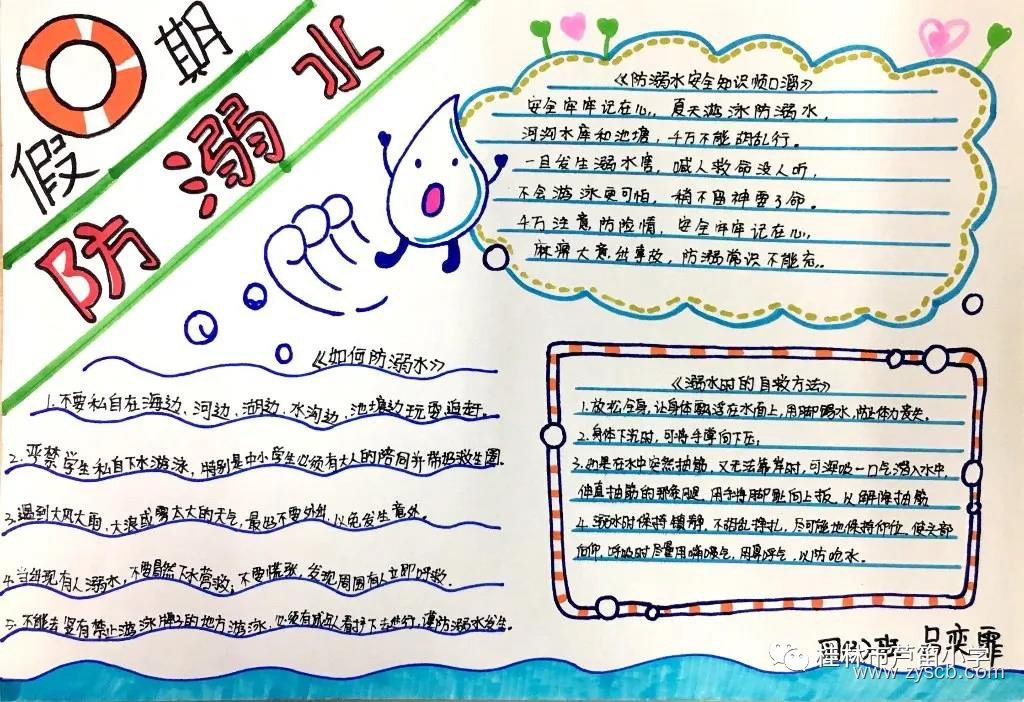 假期
防溺水
《防溺水安全知识顺口溜》
安全牢牢记在心,夏天游泳防溺水,
河沟水库和池塘,千万不能胡乱行。
一旦发生溺水害,喊人救命没人听,
不会游泳更可怕,稍不留神要了命。
千万注意防险情,安全牢牢记在心,
麻痹大意出事故,防溺常识不能忘。
《如何防溺水》
1.不要私自在海边、河边、湖边、水沟边、池塘边玩耍追赶。
2.严禁学生私自下水游泳,特别是中小学生必须有大人的陪同并带好救生圈。
3.遇到大风大雨、大浪或雾太大的天气,最好不要外出,以免发生意外。
4.当发现有人溺水,不要冒然下水营救;不要慌张,发现周围有人立即呼救.
5.不能去设有禁止游泳牌子的地方游泳,必须有成队看护下去进行,谨防溺水发生。
《溺水时的自救方法》
1.放松全身,让身体飘浮在水面上,用脚踢水,防止体力丧失。
2.身体下沉时,可将手掌向下压;
3.如果在水中突然抽筋,又无法靠岸时,可深吸一口气潜入水中,
伸直抽筋的那条腿,用手将脚趾向上扳,以解除抽筋
4.溺水时保持镇静,不胡乱挣扎,尽可能地保持仰位,使头部
后仰,呼吸时尽量用嘴吸气,用鼻呼气,以防呛水.
吕奕霏
桂林市芦笛小学
www.zyscb.com